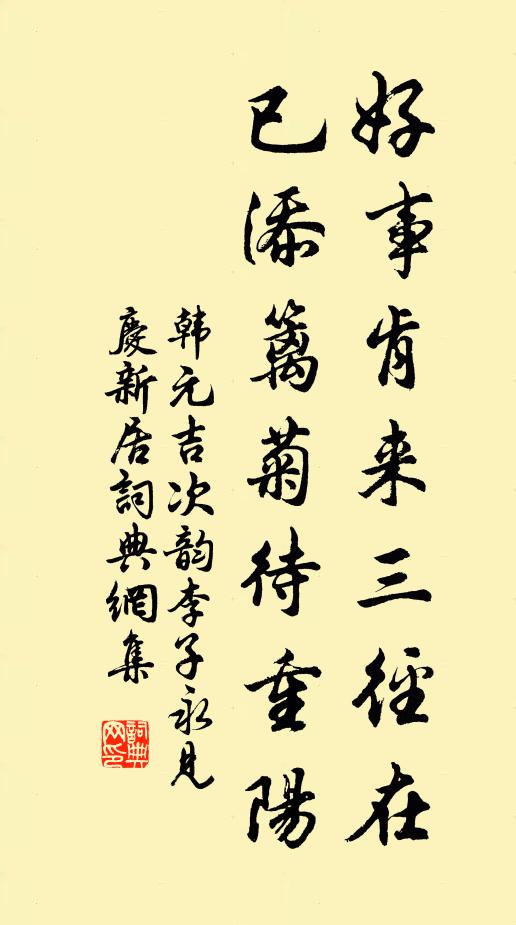 好事肯来三径在
已添篱菊待重陽
韩元吉次韵李子永見
慶新居詞典網集
詞典网印